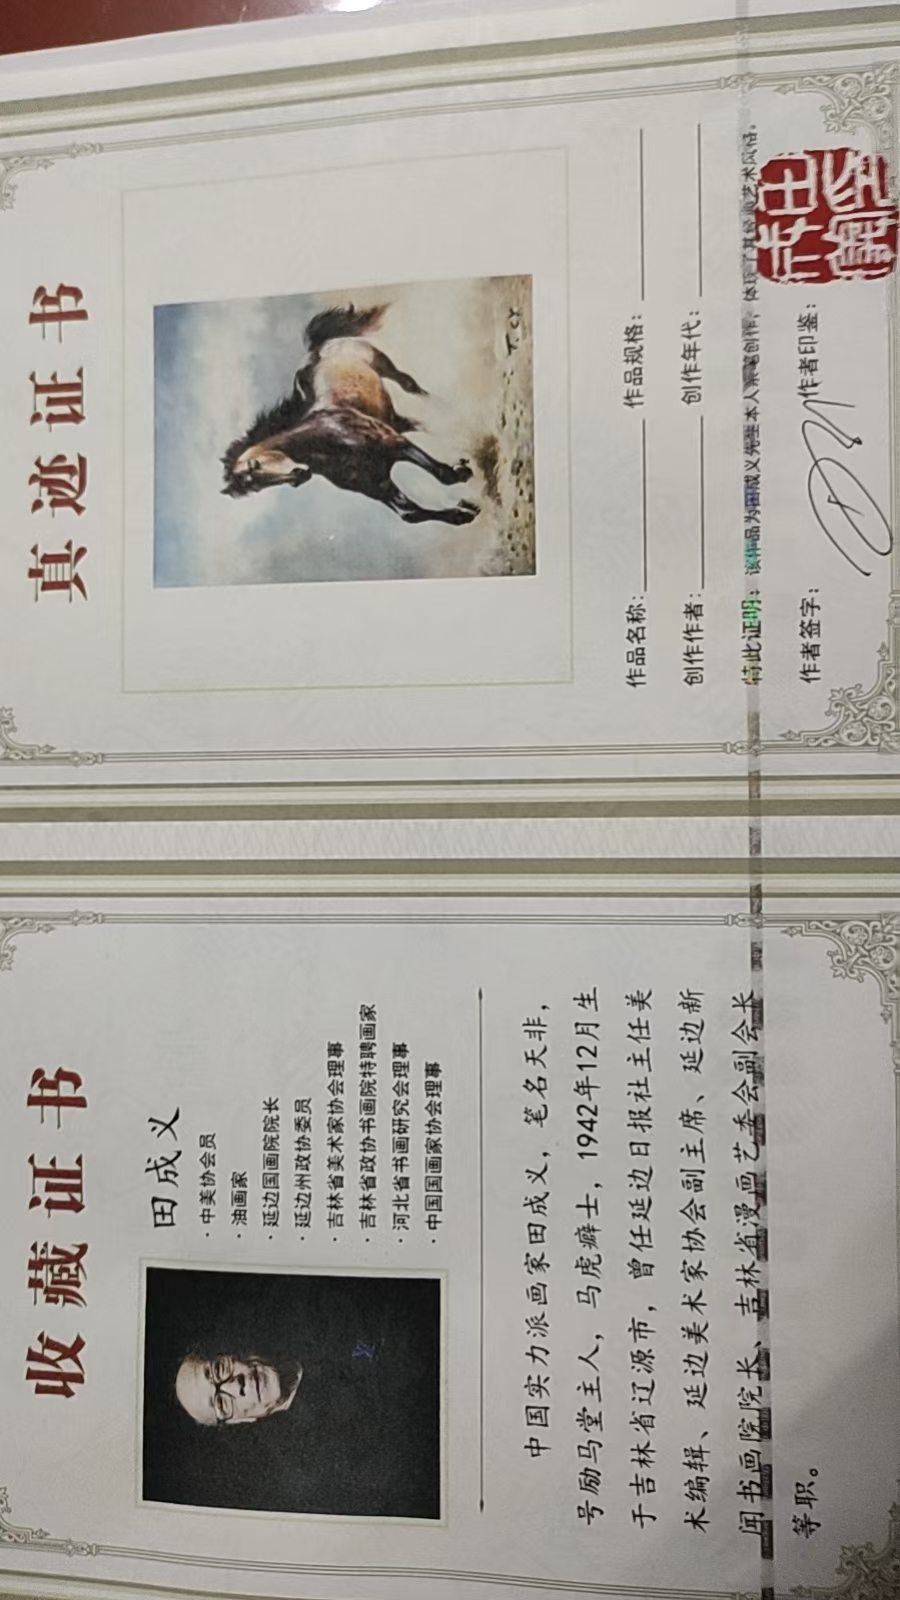 收藏证书
田成义
·中美协会员
·油画家
·延边国画院院长
·延边州政协委员
·吉林省美术家协会理事
·吉林省政协书画院特聘画家
·河北省书画研究会理事
·中国国画家协会理事
中国实力派画家田成义，笔名天非，
号励马堂主人，马虎癖士，1942年12月生
于吉林省辽源市，曾任延边日报社主任美
术编辑、延边美术家协会副主席、延边新
闻书画院院长、吉林省漫画艺委会副会长
等职。
真迹证书
T.cy
作品名称： 作品规格：
创作作者： 创作年代：
特此证明：该作品为田成义先生本人亲笔创作，体现了其经典艺术风格。
作者签字： 作者印鉴：